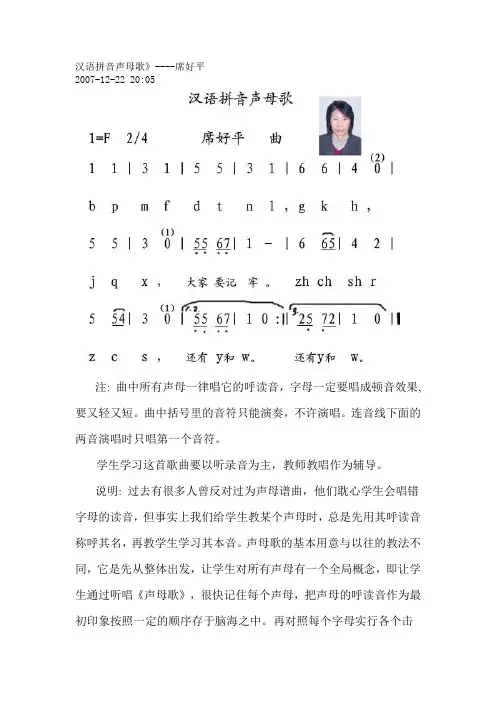 汉语拼音声母歌》----席好平
2007-12-22 20:05
汉语拼音声母歌
1=F 2/4 席好平 曲
1 1 | 3 1 | 5 5 | 3 1 | 6 6 | 4 (2)0 |
b p m f d t n l , g k h ,
5 5 | 3 (1)0 | 55 67 | 1 - | 6 65 | 4 2 |
j q x , 大家 要记 牢 。 zh ch sh r
5 54 | 3 (1)0 | 1.2. 55 67 | 1 0 :‖ 3. 25 72 | 1 0 ‖
z c s , 还有 y和 w。 还有y和 w。
注: 曲中所有声母一律唱它的呼读音,字母一定要唱成顿音效果,
要又轻又短。曲中括号里的音符只能演奏，不许演唱。连音线下面的
两音演唱时只唱第一个音符。
学生学习这首歌曲要以听录音为主，教师教唱作为辅导。
说明: 过去有很多人曾反对过为声母谱曲，他们耽心学生会唱错
字母的读音，但事实上我们给学生教某个声母时，总是先用其呼读音
称呼其名，再教学生学习其本音。声母歌的基本用意与以往的教法不
同，它是先从整体出发，让学生对所有声母有一个全局概念，即让学
生通过听唱《声母歌》，很快记住每个声母，把声母的呼读音作为最
初印象按照一定的顺序存于脑海之中。再对照每个字母实行各个击